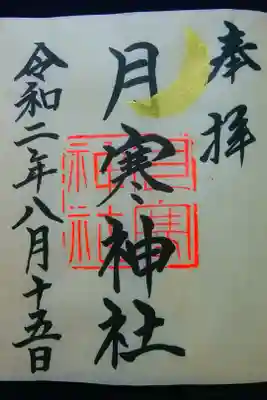 奉拝
月寒神社
令和二年八月十五日
月寒神社